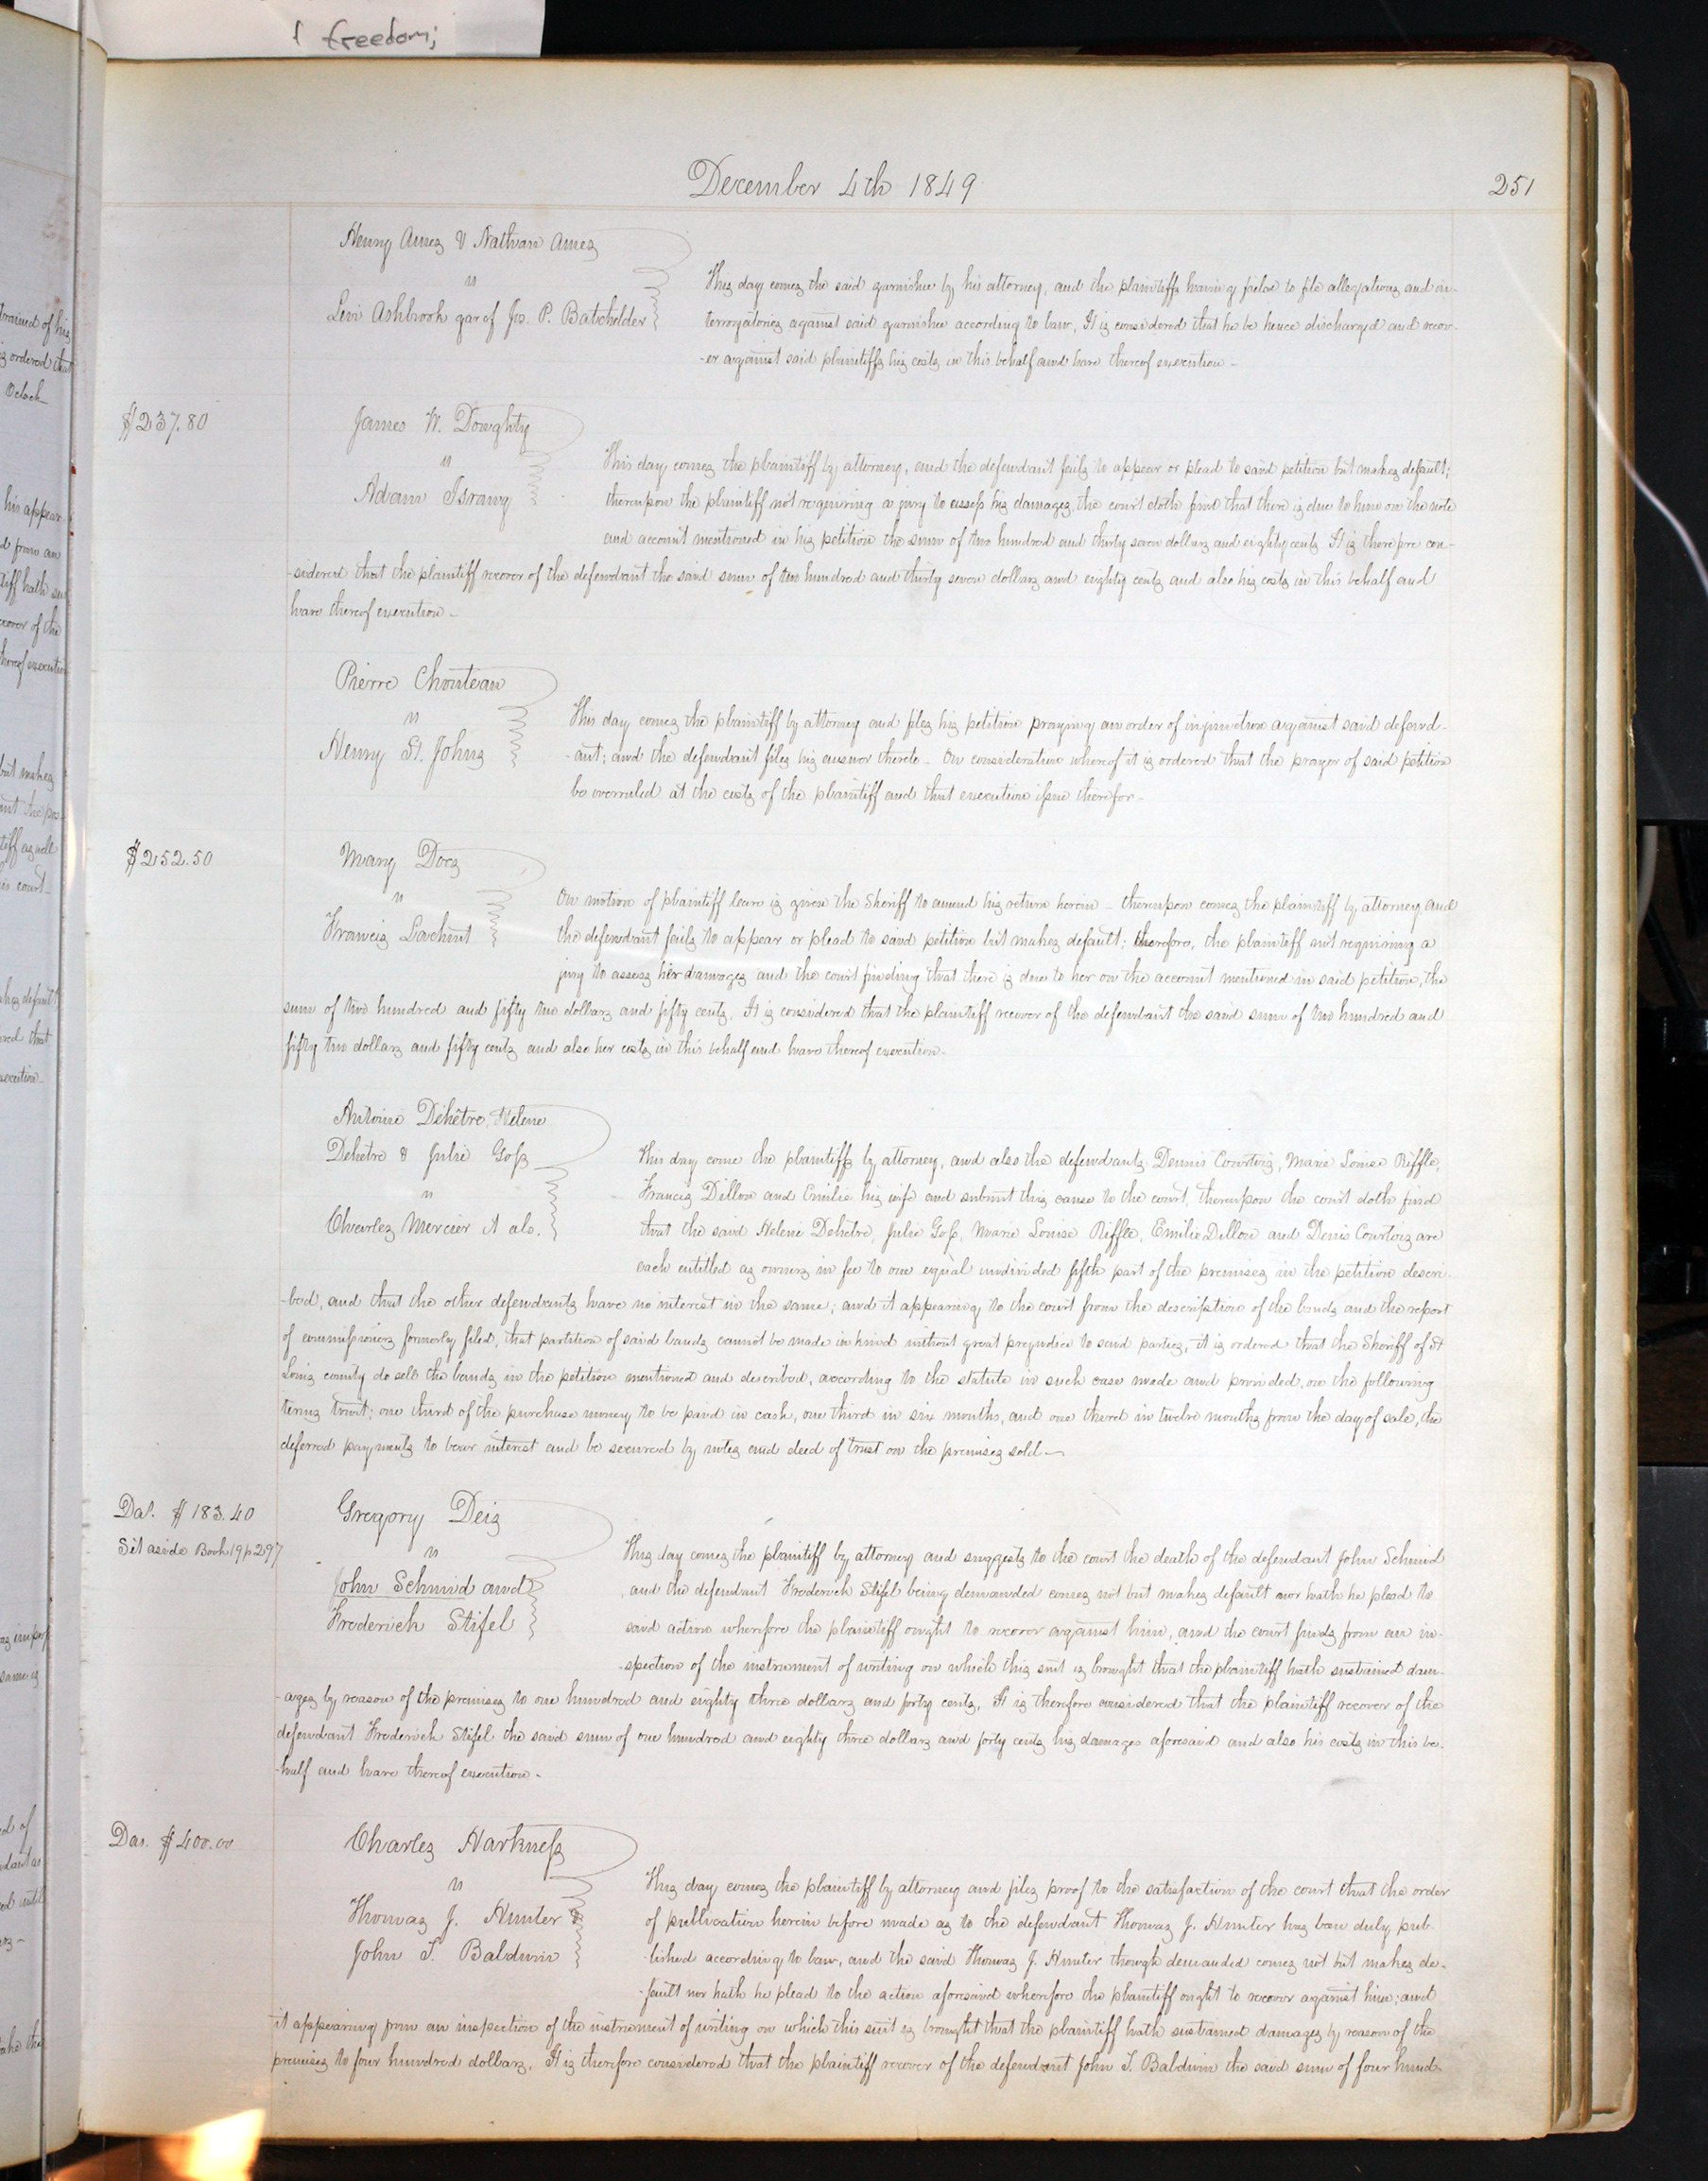 freedom;
December 4th 1849
251
Henry Ames & Nathan Ames
vs
Levi Ashbrook gar of Jos. P. Batchelder
This day comes the said garnishee by his attorney, and the plaintiffs having failed to file allegations and in-
terrogatories against said garnishee according to law, It is considered that he be hence discharged and recov-
-er against said plaintiffs his costs in this behalf and have thereof execution -
$237.80
James W. Doughty
vs
Adam Israng
This day comes the plaintiff by attorney, and the defendant fails to appear or plead to said petition but makes default;
thereupon the plaintiff not requiring a jury to assess his damages, the court doth find that there is due to him on the note
and account mentioned in his petition the sum of two hundred and thirty seven dollars and eighty cents It is therefore con-
-sidered that the plaintiff recover of the defendant the said sum of two hundred and thirty seven dollars and eighty cents and also his costs in this behalf and
have thereof execution -
Pierre Chouteau
vs
Henry St. Johns
This day comes the plaintiff by attorney and files his petition praying an order of injunction against said defend-
-ant; and the defendant files his answer thereto - On consideration whereof it is ordered that the prayer of said petition
be overruled at the costs of the plaintiff and that execution issue therefor -
$252.50
Mary Does
vs
Francis Lachent
On motion of plaintiff leave is given the Sheriff to amend his return herein - thereupon comes the plaintiff by attorney and
the defendant fails to appear or plead to said petition but makes default; therefore, the plaintiff not requiring a
jury to assess her damages and the court finding that there is due to her on the account mentioned in said petition, the
sum of two hundred and fifty two dollars and fifty cents, It is considered that the plaintiff recover of the defendant the said sum of two hundred and
fifty two dollars and fifty cents and also her costs in this behalf and have thereof execution -
Antoine Dehêtre, Helene
Dehêtre & Julie Goss
vs
Charles Mercier et als.
This day come the plaintiffs by attorney, and also the defendants Dennis Courtois, Marie Louise Riffle,
Francis Dillon and Emilie his wife and submit this cause to the court, thereupon the court doth find
that the said Helene Dehetre, Julie Goss, Marie Louise Riffle, Emilie Dillon and Denis Courtois are
each entitled as owners in fee to one equal undivided fifth part of the premises in the petition descri-
-bed, and that the other defendants have no interest in the same; and it appearing to the court from the description of the lands and the report
of commissioners formerly filed, that partition of said lands cannot be made in kind without great prejudice to said parties, it is ordered that the Sheriff of St
Louis county do sell the lands in the petition mentioned and described, according to the statute in such case made and provided, on the following
terms towit; one third of the purchase money to be paid in cash, one third in six months, and one third in twelve months from the day of sale, the
deferred payments to bear interest and be secured by notes and deed of trust on the premises sold -
Das. $183.40
Set aside Book 19 p 297
Gregory Deis
vs
John Schmid and
Frederick Stifel
This day comes the plaintiff by attorney and suggests to the court the death of the defendant John Schmid
and the defendant Frederick Stifel being demanded comes not but makes default nor hath he plead to
said action wherefore the plaintiff ought to recover against him, and the court finds from an in-
-spection of the instrument of writing on which this suit is brought that the plaintiff hath sustained dam-
-ages by reason of the premises to one hundred and eighty three dollars and forty cents, It is therefore considered that the plaintiff recover of the
defendant Frederick Stifel the said sum of one hundred and eighty three dollars and forty cents his damages aforesaid and also his costs in this be-
-half and have thereof execution -
Das. $400.00
Charles Harkness
vs
Thomas J. Hunter &
John T. Baldwin
This day comes the plaintiff by attorney and files proof to the satisfaction of the court that the order
of publication herein before made as to the defendant Thomas J. Hunter has been duly pub-
-lished according to law, and the said Thomas J. Hunter though demanded comes not but makes de-
-fault nor hath he plead to the action aforesaid wherefore the plaintiff ought to recover against him; and
it appearing from an inspection of the instrument of writing on which this suit is brought that the plaintiff hath sustained damages by reason of the
premises to four hundred dollars, It is therefore considered that the plaintiff recover of the defendant John T. Baldwin the said sum of four hund-